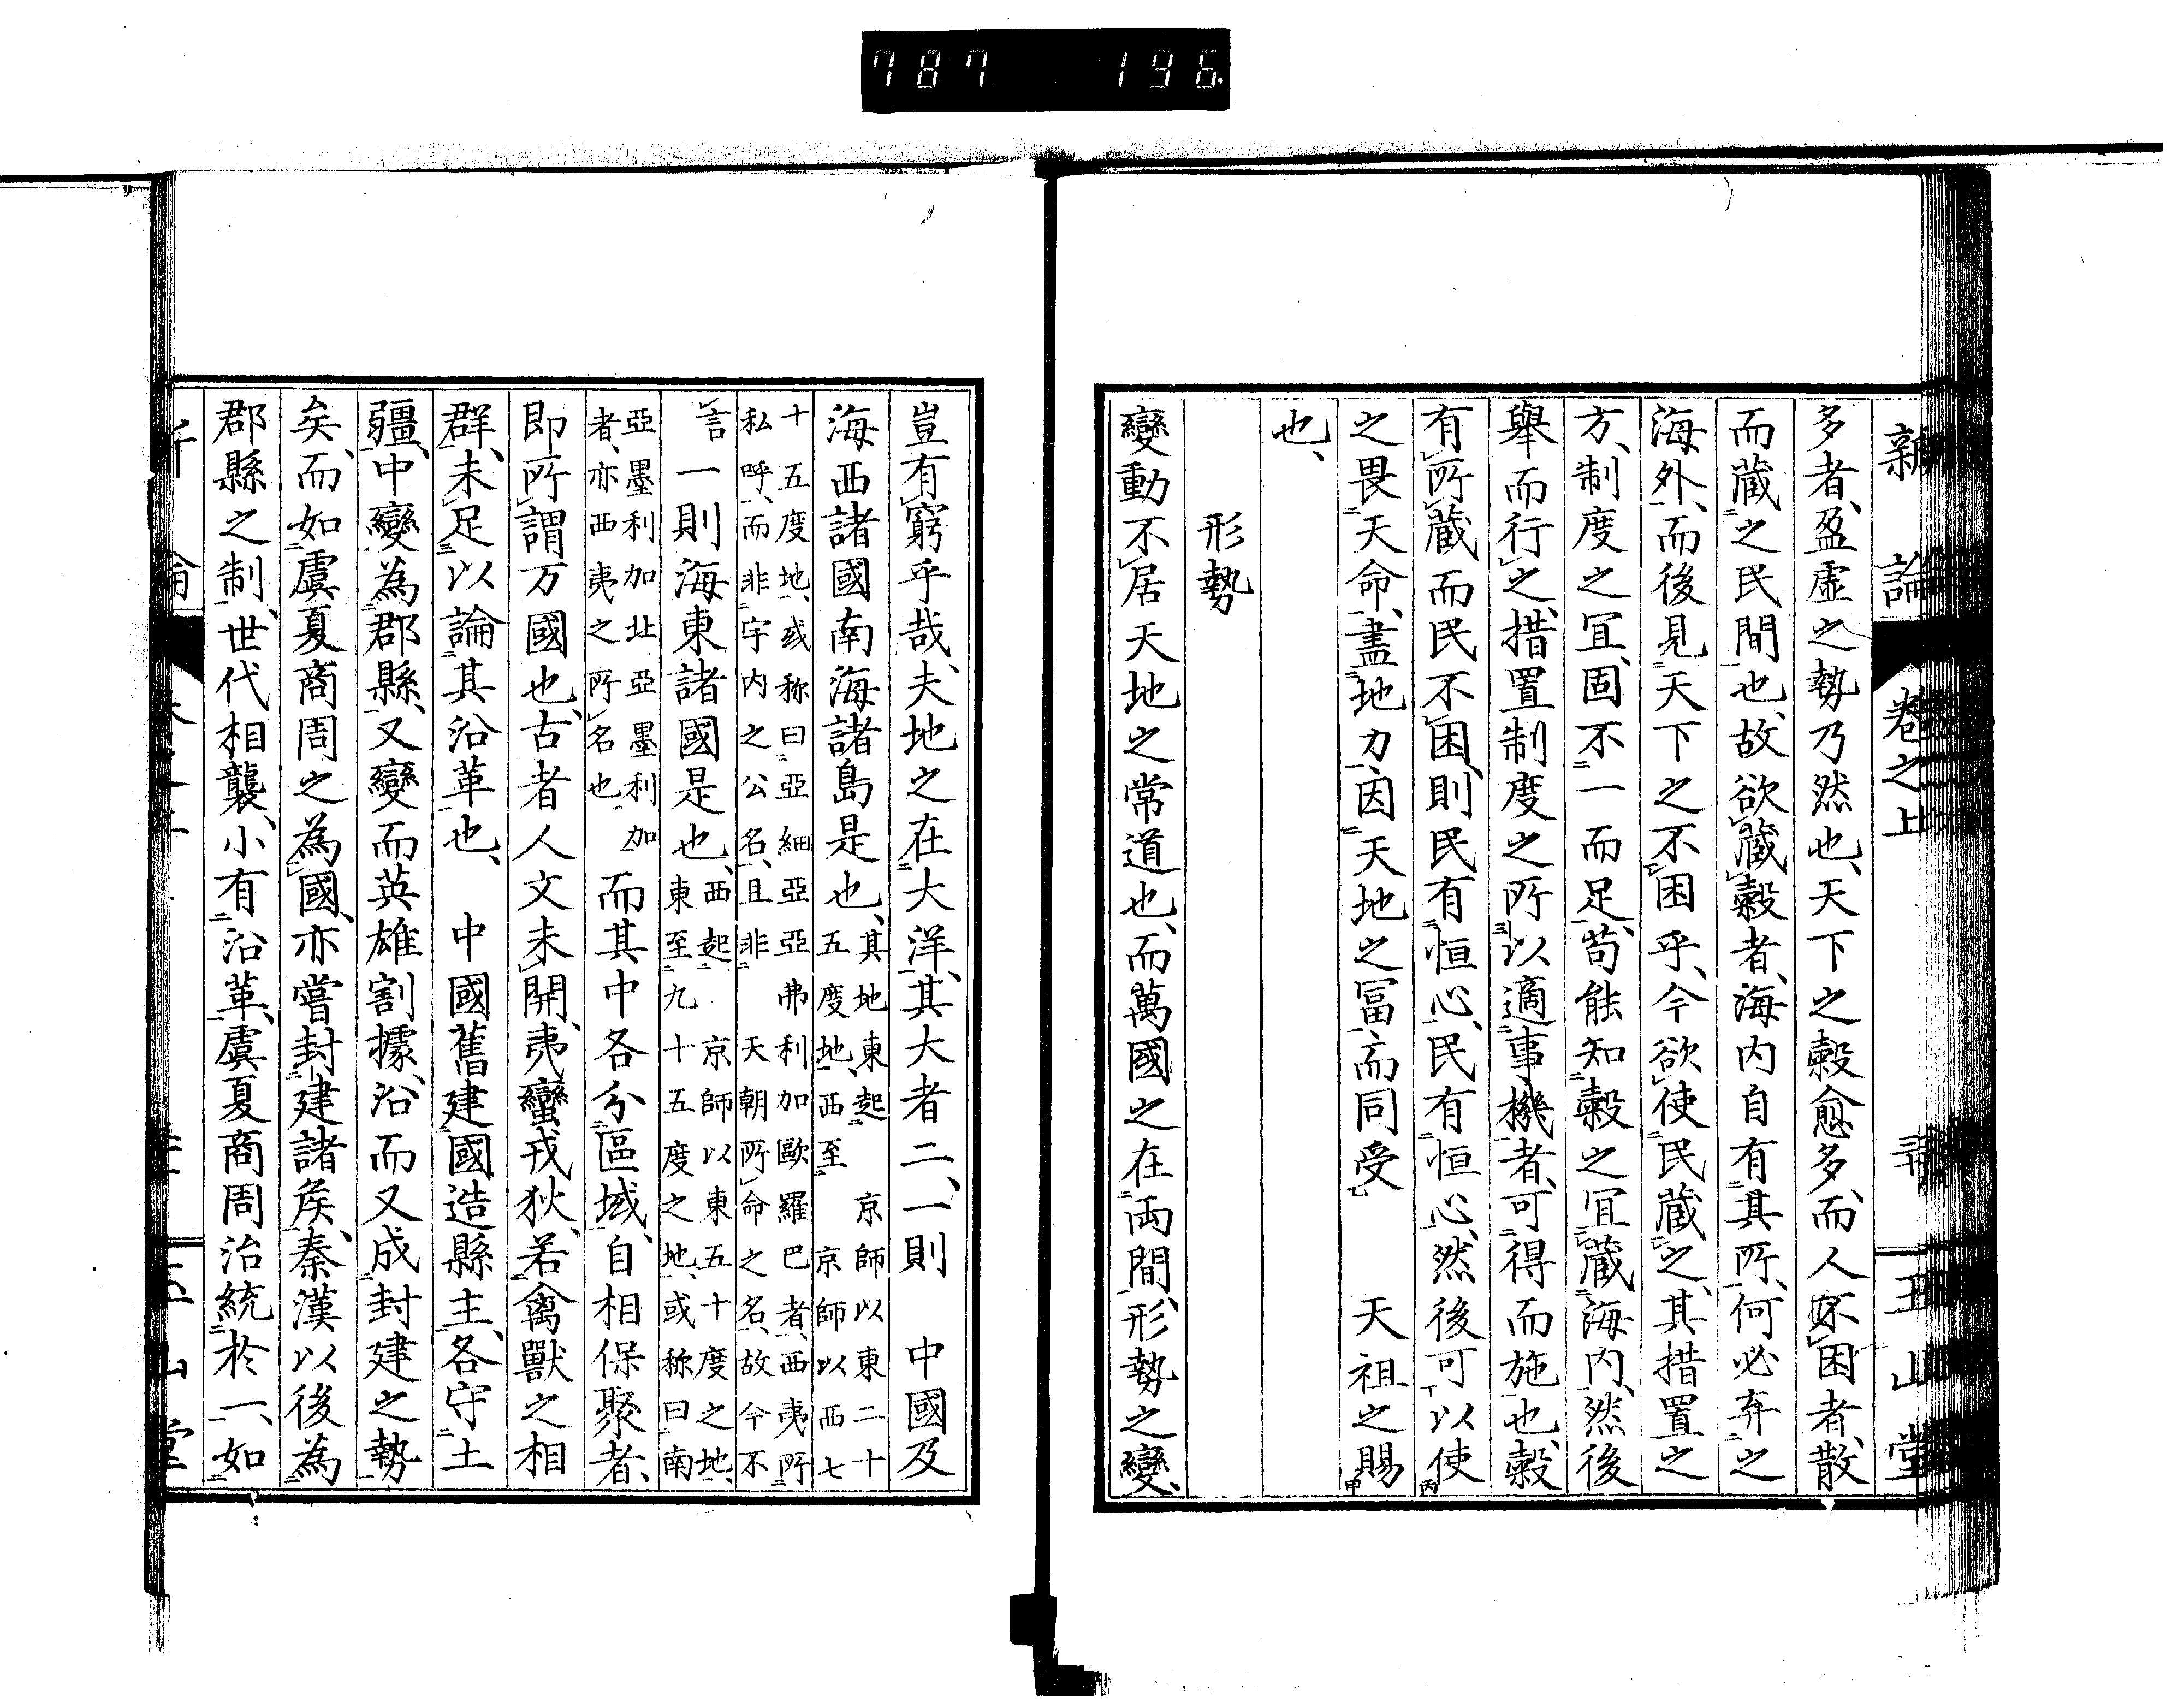 787 196.
新論 卷之上 玉山堂
多者、盈虛之勢乃然也、天下之穀愈多、而人不困者、散
而藏之民間也、故欲藏穀者、海內自有其所、何必弃之
海外、而後見天下之不困乎、今欲使民藏之、其措置之
方、制度之冝、固不一而足、苟能知穀之冝藏海內、然後
舉而行之、措置制度之所以適事機者、可得而施也、穀
有所藏而民不困、則民有恒心、民有恒心、然後可以使
之畏天命、盡地力、因天地之冨、而同受 天祖之賜
也、
形勢
變動不居天地之常道也、而萬國之在両間、形勢之變、
豈有窮乎哉、夫地之在大洋、其大者二、一則 中國及
海西諸國南海諸島是也、其地東起 京師以東二十
五度地、西至 京師以西七
十五度地、或称曰亞細亞亞弗利加歐羅巴者、西夷所
私呼、而非宇內之公名、且非 天朝所命之名、故今不
言 一則海東諸國是也、西起 京師以東五十度之地、
東至九十五度之地、或称曰南
亞墨利加北亞墨利加
者、亦西夷之所名也 而其中各分區域、自相保聚者、
即所謂万國也、古者人文未開、夷蠻戎狄、若禽獸之相
群、未足以論其沿革也、 中國舊建國造縣主、各守土
疆、中變為郡縣、又變而英雄割據、沿而又成封建之勢
矣、而如虞夏商周之為國、亦嘗封建諸侯、秦漢以後為
郡縣之制、世代相襲、小有沿革、虞夏商周治統於一、如